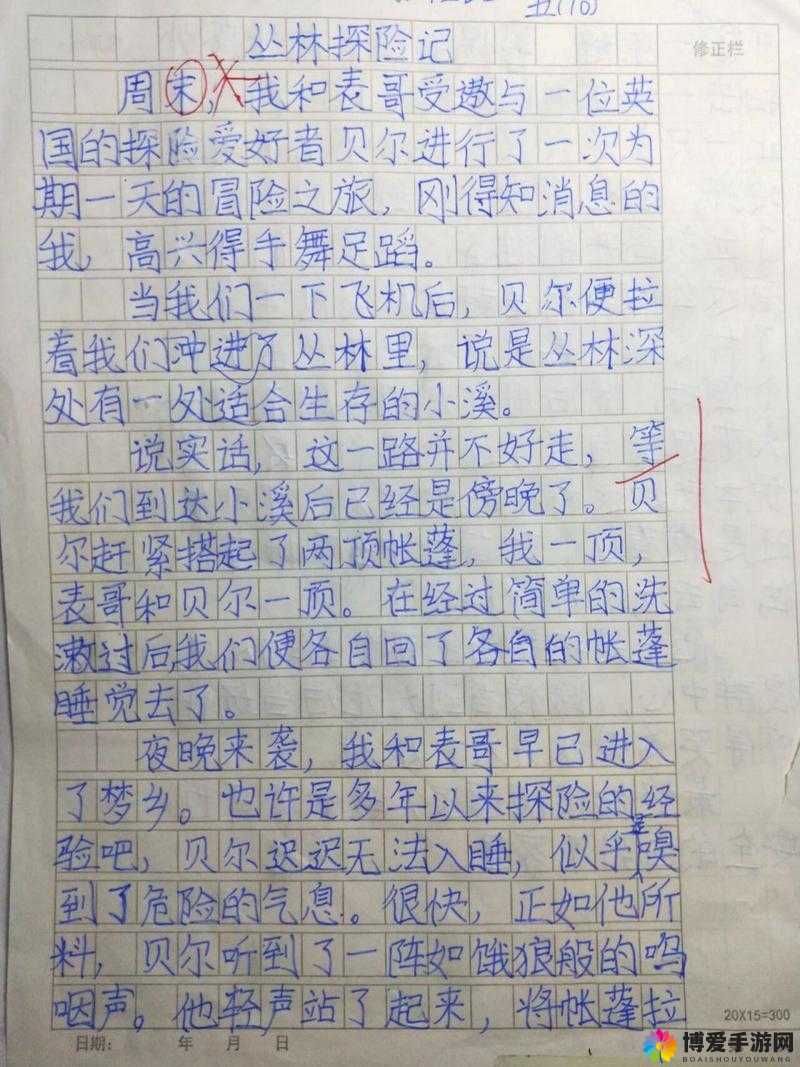 五(10)
丛林探险记
修正栏
周末，我和表哥受遨与一位英
国的探险爱好者贝尔进行了一次为
期一天的冒险之旅，刚得知消息的
我，高兴得手舞足蹈。
当我们一下飞机后，贝尔便拉
着我们冲进了丛林里，说是丛林深
处有一处适合生存的小溪。
说实话，这一路并不好走，等
我们到达小溪后已经是傍晚了。贝
尔赶紧搭起了两顶帐蓬，我一顶，
表哥和贝尔一顶。在经过简单的洗
漱过后，我们便各自回了各自的帐蓬
睡觉去了。
夜晚来袭，我和表哥早已进入
了梦乡。也许是多年以来探险的经
验吧，贝尔迟迟无法入睡，似乎是嗅
到了危险的气息。很快，正如他所
料，贝尔听到了一阵如饿狼般的呜
咽声。他轻声站了起来，将帐蓬拉
20X15=300
日期： 年 月 日
博爱手游网
BOAISHOUYOUWANG